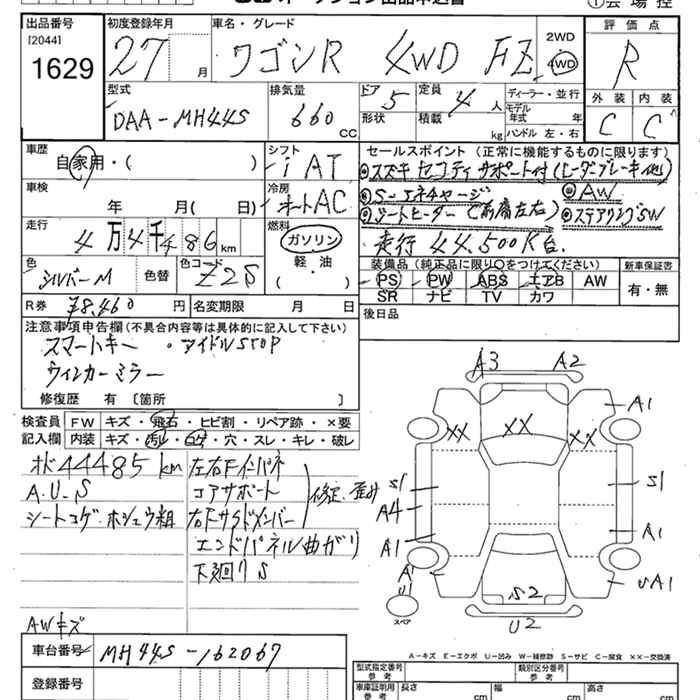 出品番号
[2044]
1629
初度登録年月
27 月
車名・グレード
ワゴンR 4WD FZ
2WD
4WD
評価点
R
型式
DAA-MH44S
排気量
660 CC
ドア
5
形状
定員
4 人
積載 kg
ディーラー・並行
モデル年式 年
ハンドル 左・右
外装 内装
C C
車歴
自家用・( )
シフト
iAT
車検
年 月( 日)
冷房
オートAC
走行
4万4千486km
燃料
ガソリン
軽油
( )
色
シルバーM
色替
色コード
Z2S
R券 ¥8,460 円
名変期限 月 日
セールスポイント(正常に機能するものに限ります)
◎スズキ セーフティサポート付(ヒーダーブレーキ他)
◎S-エネチャージ ◎AW
◎シートヒーター(前席左右) ◎ステアリングSW
走行44,500K台.
装備品(純正品に限り〇をつけてください)
PS PW ABS エアB AW
SR ナビ TV カワ
新車保証書
有・無
後日品
注意事項申告欄(不具合内容等は具体的に記入して下さい)
スマートキー ・アイドルSTOP
ウィンカーミラー
修復歴 有〔箇所 〕
検査員
記入欄
FW キズ・飛石・ヒビ割・リペア跡・×要
内装 キズ・汚れ・穴・スレ・キレ・破レ
44485km
A.U.S
シートコゲ・ホシュウ粗
AWキズ
左右Fインパネ
コアサポート
右Fサイドメンバー
修正 歪み
エンドパネル曲がり
下廻りS
A3 A2
A1
XX XX XX
S1 S1
A4
A1 A1
A1
U1
UA1
S2
U2
スペア
A-キズ E-エクボ U-凹み W-補修跡 S-サビ C-腐食 XX-交換済
車台番号 MH44S-162067
登録番号
型式指定番号
参考
類別区分番号
参考
車庫証明用
参考
長さ cm
幅 cm
高さ cm